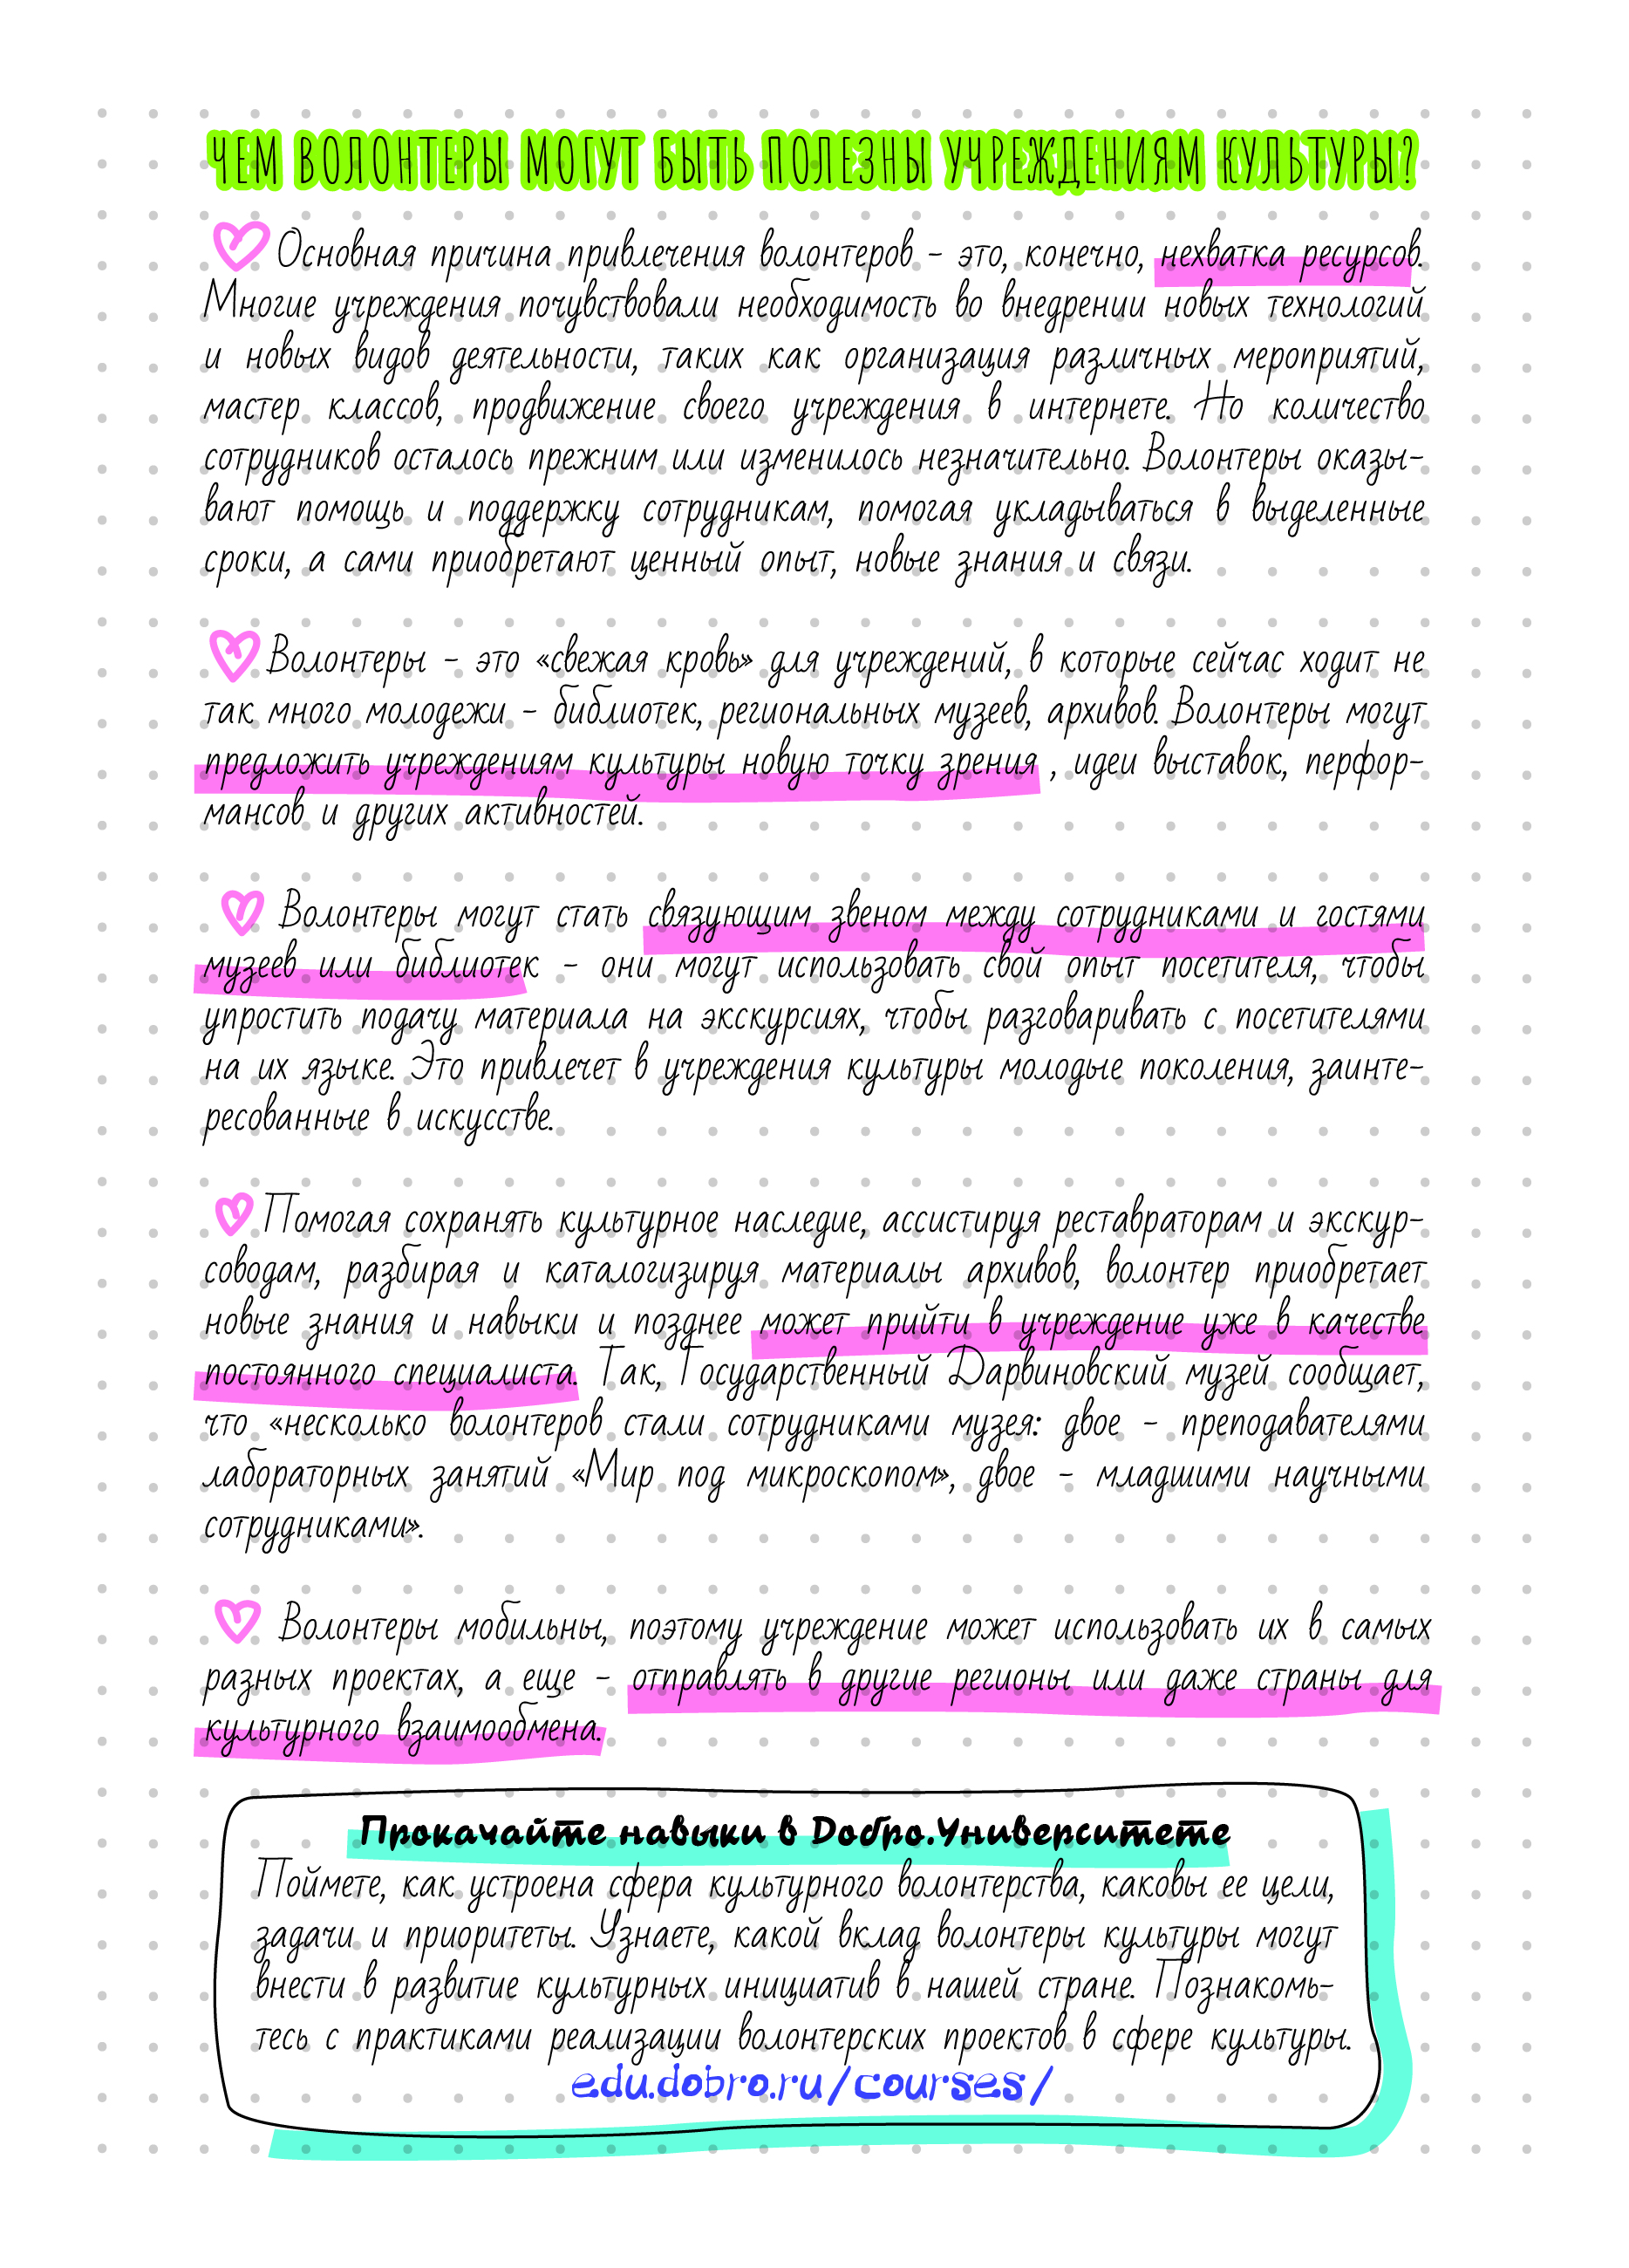 ЧЕМ ВОЛОНТЕРЫ МОГУТ БЫТЬ ПОЛЕЗНЫ УЧРЕЖДЕНИЯМ КУЛЬТУРЫ?
Основная причина привлечения волонтеров - это, конечно, нехватка ресурсов.
Многие учреждения почувствовали необходимость во внедрении новых технологий
и новых видов деятельности, таких как организация различных мероприятий,
мастер классов, продвижение своего учреждения в интернете. Но количество
сотрудников осталось прежним или изменилось незначительно. Волонтеры оказы-
вают помощь и поддержку сотрудникам, помогая укладываться в выделенные
сроки, а сами приобретают ценный опыт, новые знания и связи.
Волонтеры - это «свежая кровь» для учреждений, в которые сейчас ходит не
так много молодежи - библиотек, региональных музеев, архивов. Волонтеры могут
предложить учреждениям культуры новую точку зрения , идеи выставок, перфор-
мансов и других активностей.
Волонтеры могут стать связующим звеном между сотрудниками и гостями
музеев или библиотек - они могут использовать свой опыт посетителя, чтобы
упростить подачу материала на экскурсиях, чтобы разговаривать с посетителями
на их языке. Это привлечет в учреждения культуры молодые поколения, заинте-
ресованные в искусстве.
Помогая сохранять культурное наследие, ассистируя реставраторам и экскур-
соводам, разбирая и каталогизируя материалы архивов, волонтер приобретает
новые знания и навыки и позднее может прийти в учреждение уже в качестве
постоянного специалиста. Так, Государственный Дарвиновский музей сообщает,
что «несколько волонтеров стали сотрудниками музея: двое - преподавателями
лабораторных занятий «Мир под микроскопом», двое - младшими научными
сотрудниками».
Волонтеры мобильны, поэтому учреждение может использовать их в самых
разных проектах, а еще - отправлять в другие регионы или даже страны для
культурного взаимообмена.
Прокачайте навыки в Добро.Университете
Поймете, как устроена сфера культурного волонтерства, каковы ее цели,
задачи и приоритеты. Узнаете, какой вклад волонтеры культуры могут
внести в развитие культурных инициатив в нашей стране. Познакомь-
тесь с практиками реализации волонтерских проектов в сфере культуры.
edu.dobro.ru/courses/